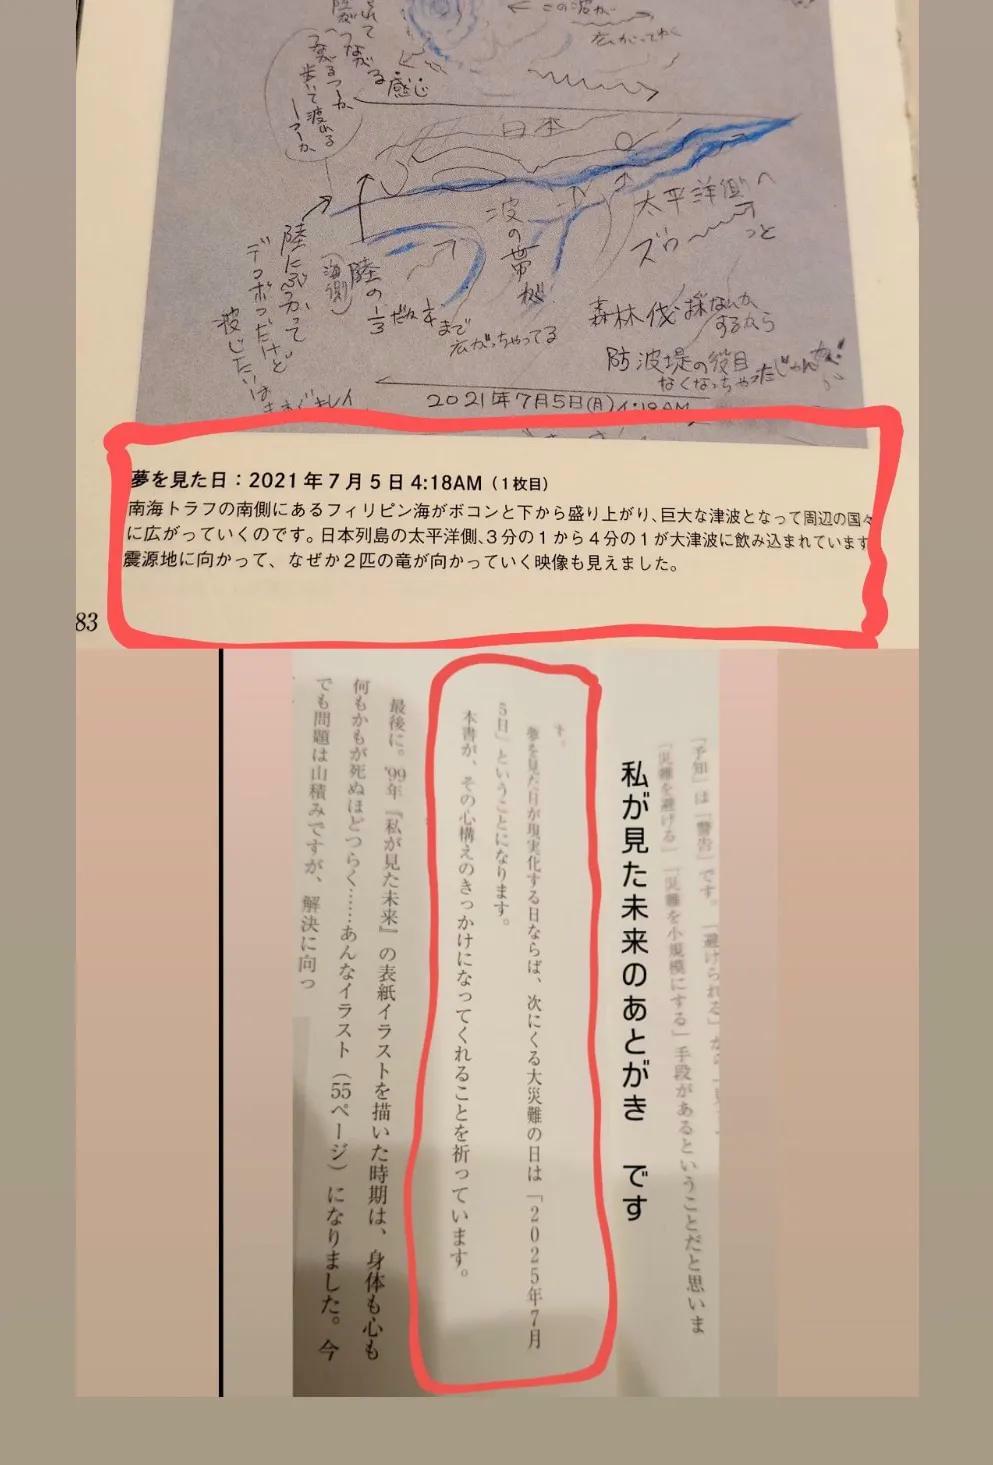 この波が
広がってゆく
つながる
感じ
つながるつーか
歩いて渡れる
つーか
日本
太平洋側へ
ズゥーっと
波の帯が
陸にぶつかって
デコボコだけど
波じたいは
海側
陸の1/3だか1/4まで
広がっちゃってる
森林伐採なんか
するから
防波堤の役目
なくなっちゃったじゃんか!
2021年7月5日(月)4:18AM
夢を見た日:2021年7月5日 4:18AM(1枚目)
南海トラフの南側にあるフィリピン海がボコンと下から盛り上がり、巨大な津波となって周辺の国々
に広がっていくのです。日本列島の太平洋側、3分の1から4分の1が大津波に飲み込まれています
震源地に向かって、なぜか2匹の竜が向かっていく映像も見えました。
83
「予知」は「警告」です。「避けられる」から
「災難を避ける」「災難を小規模にする」手段があるということだと思いま
私が見た未来のあとがき です
す。
夢を見た日が現実化する日ならば、次にくる大災難の日は「2025年7月
5日」ということになります。
本書が、その心構えのきっかけになってくれることを祈っています。
最後に。'99年『私が見た未来』の表紙イラストを描いた時期は、身体も心も
何もかもが死ぬほどつらく……あんなイラスト(55ページ)になりました。今
でも問題は山積みですが、解決に向っ